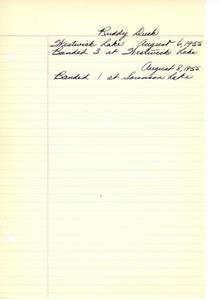 Ruddy Duck
Westwick Lake August 6, 1955
Banded 3 at Westwick Lake
August 8, 1955
Banded 1 at Sorenson Lake